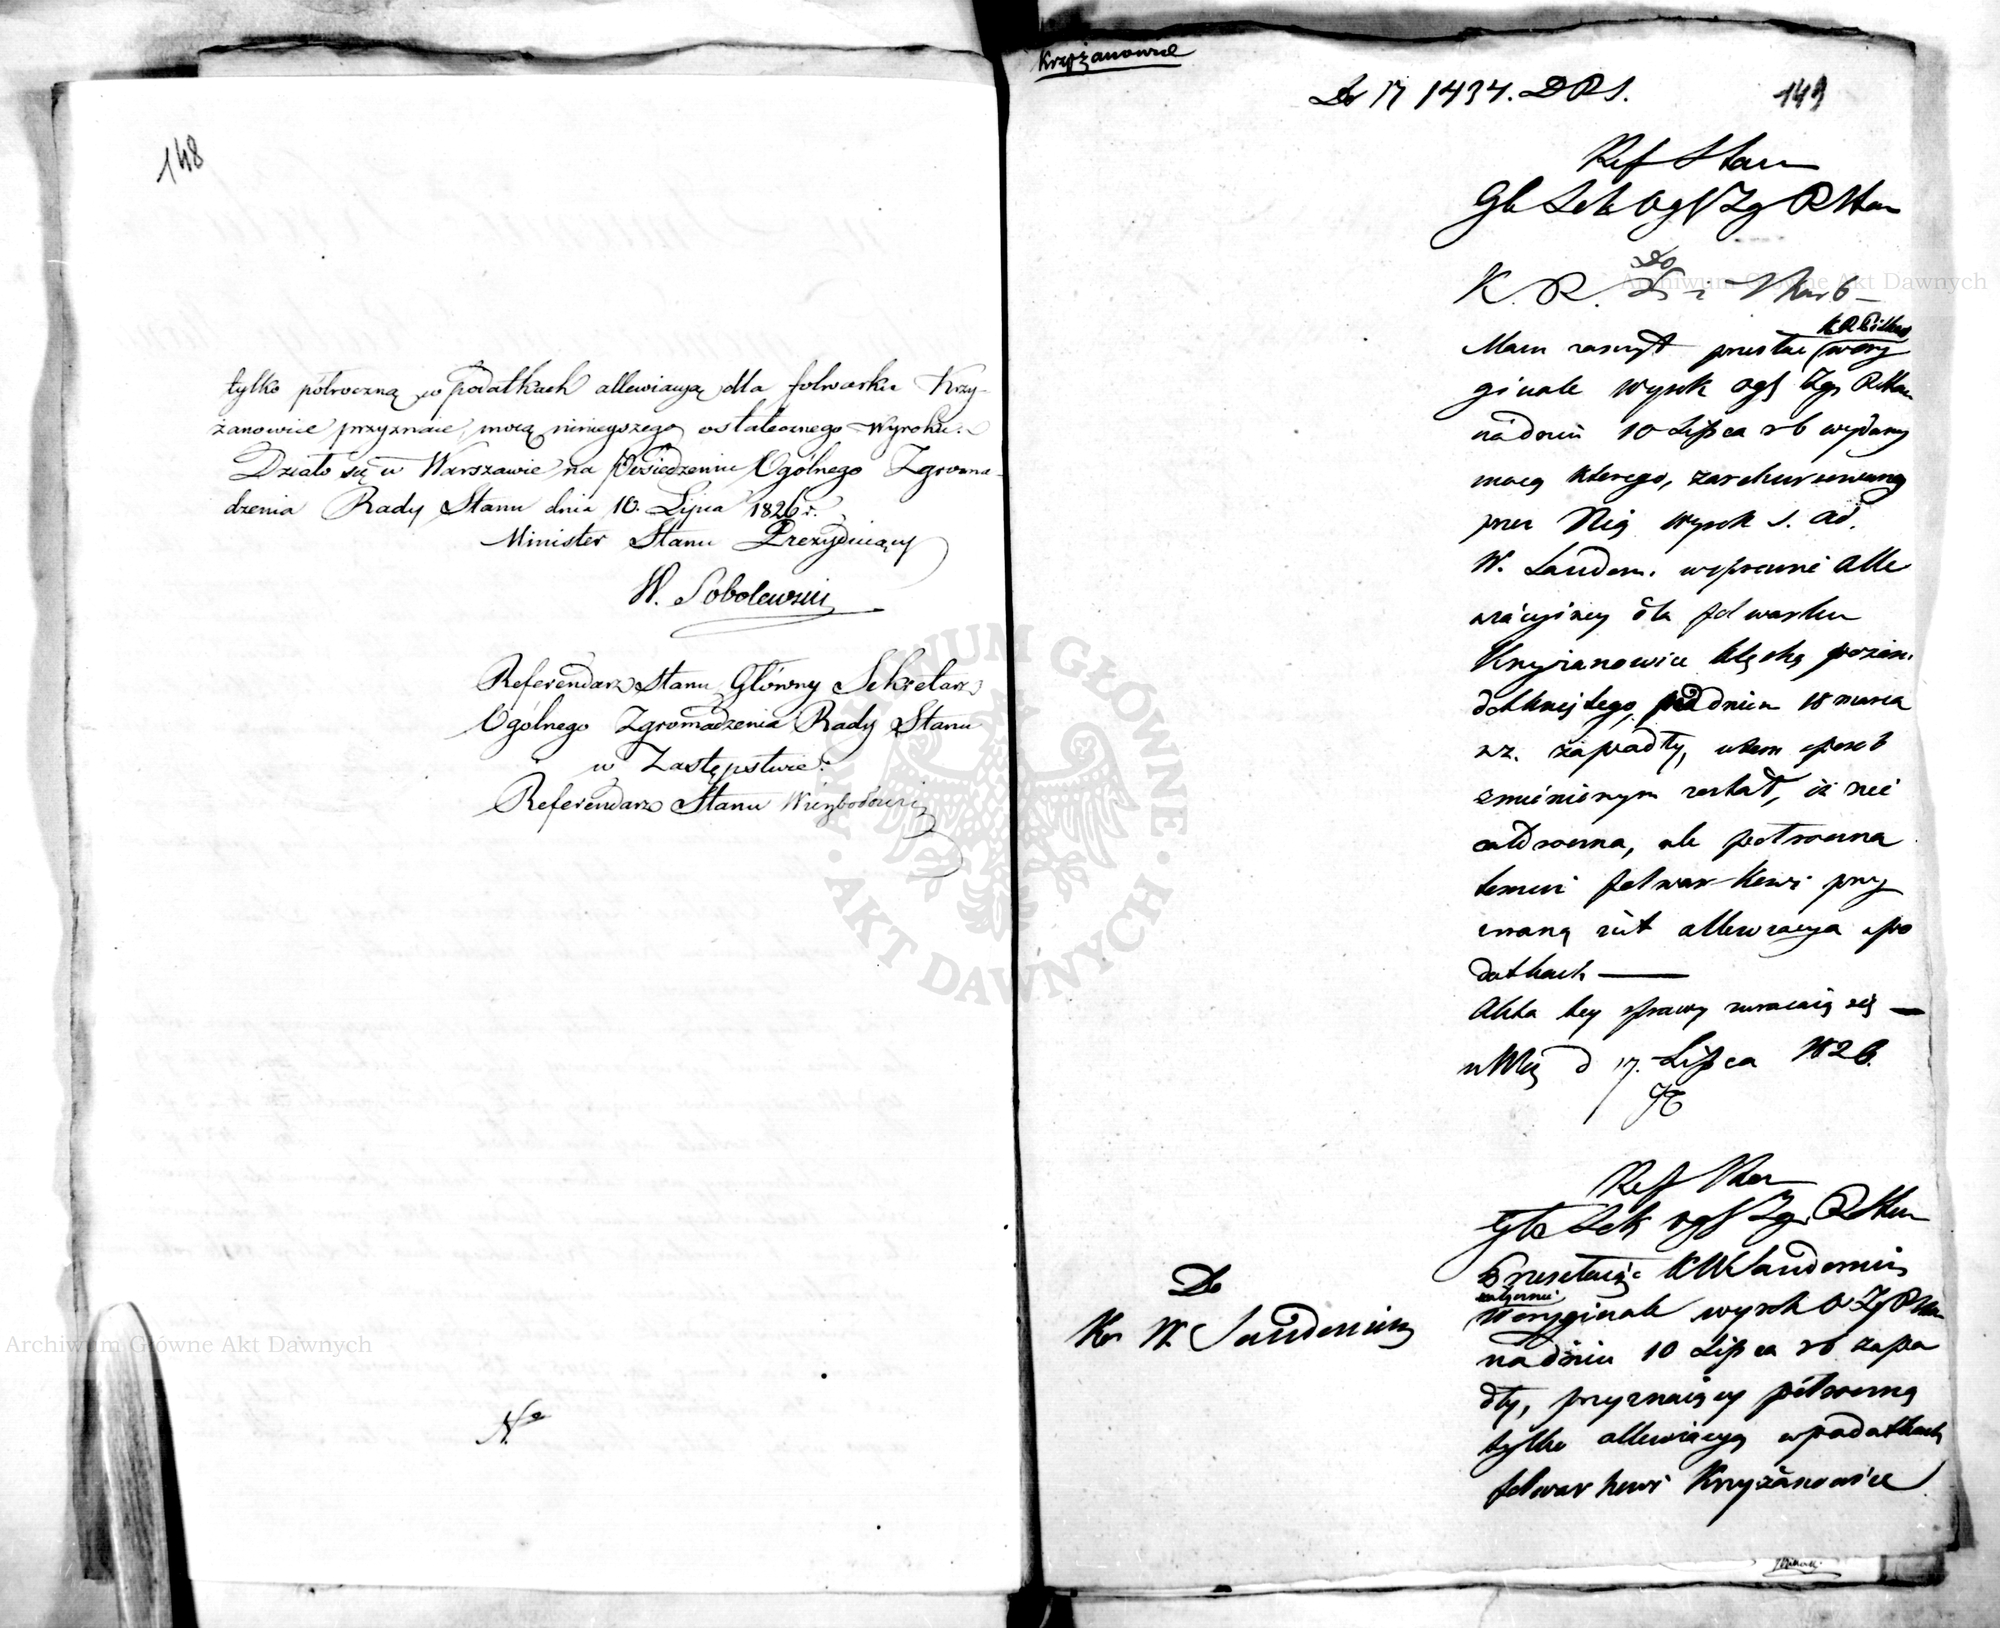 148
tylko półroczną w podatkach allewiacyą dla folwarku Krzy-
żanowice przyznaie, mocą ninieyszego ostatecznego Wyroku.
Działo się w Warszawie na Posiedzeniu Ogólnego Zgroma-
dzenia Rady Stanu dnia 10. Lipca 1826 r.
Minister Stanu Prezyduiący
W. Sobolewski
Referendarz Stanu Główny Sekretarz
Ogólnego Zgromadzenia Rady Stanu
w Zastępstwie.
Referendarz Stanu Wierzbołowicz
N.
Krzyżanowice
Do N 1434. D R S.
149
Ref Stanu
Gł Sek Ogl Zg R Stan
Do
K. R. Skarb
Mam zaszczyt przesłać w ory
ginale wyrok ogl Zgr RStan
na dniu 10 Lipca r b wydany
mocą którego, zaskarżony
przez Nią wyrok S. Ad.
W. Sandom. w sprawie alle
wiacyiney dla folwarku
Krzyżanowice klęską
dotkniętego, na dniu 18 marca
zapadły, w tem sposob
zmienionym został, iż nie
całoroczna, ale półroczna
temuż folwarkowi przy
znaną iest allewiacya w po
datkach —
Akta tey sprawy zwracaią się —
w Wie d 17. Lipca 1826.
Ref Stan
Gł Sek ogl Zgr R Stan
Do
Ko W. Sandomier
Przesełaiąc KW Sandomier
w oryginale wyrok O Zg R Stan
na dniu 10 Lipca r b zapa
dły, przyznaiący półroczną
tylko allewiacyą w podatkach
folwarkowi Krzyżanowice
Archiwum Główne Akt Dawnych
Archiwum Główne Akt Dawnych
ARCHIWUM GŁÓWNE · AKT DAWNYCH ·